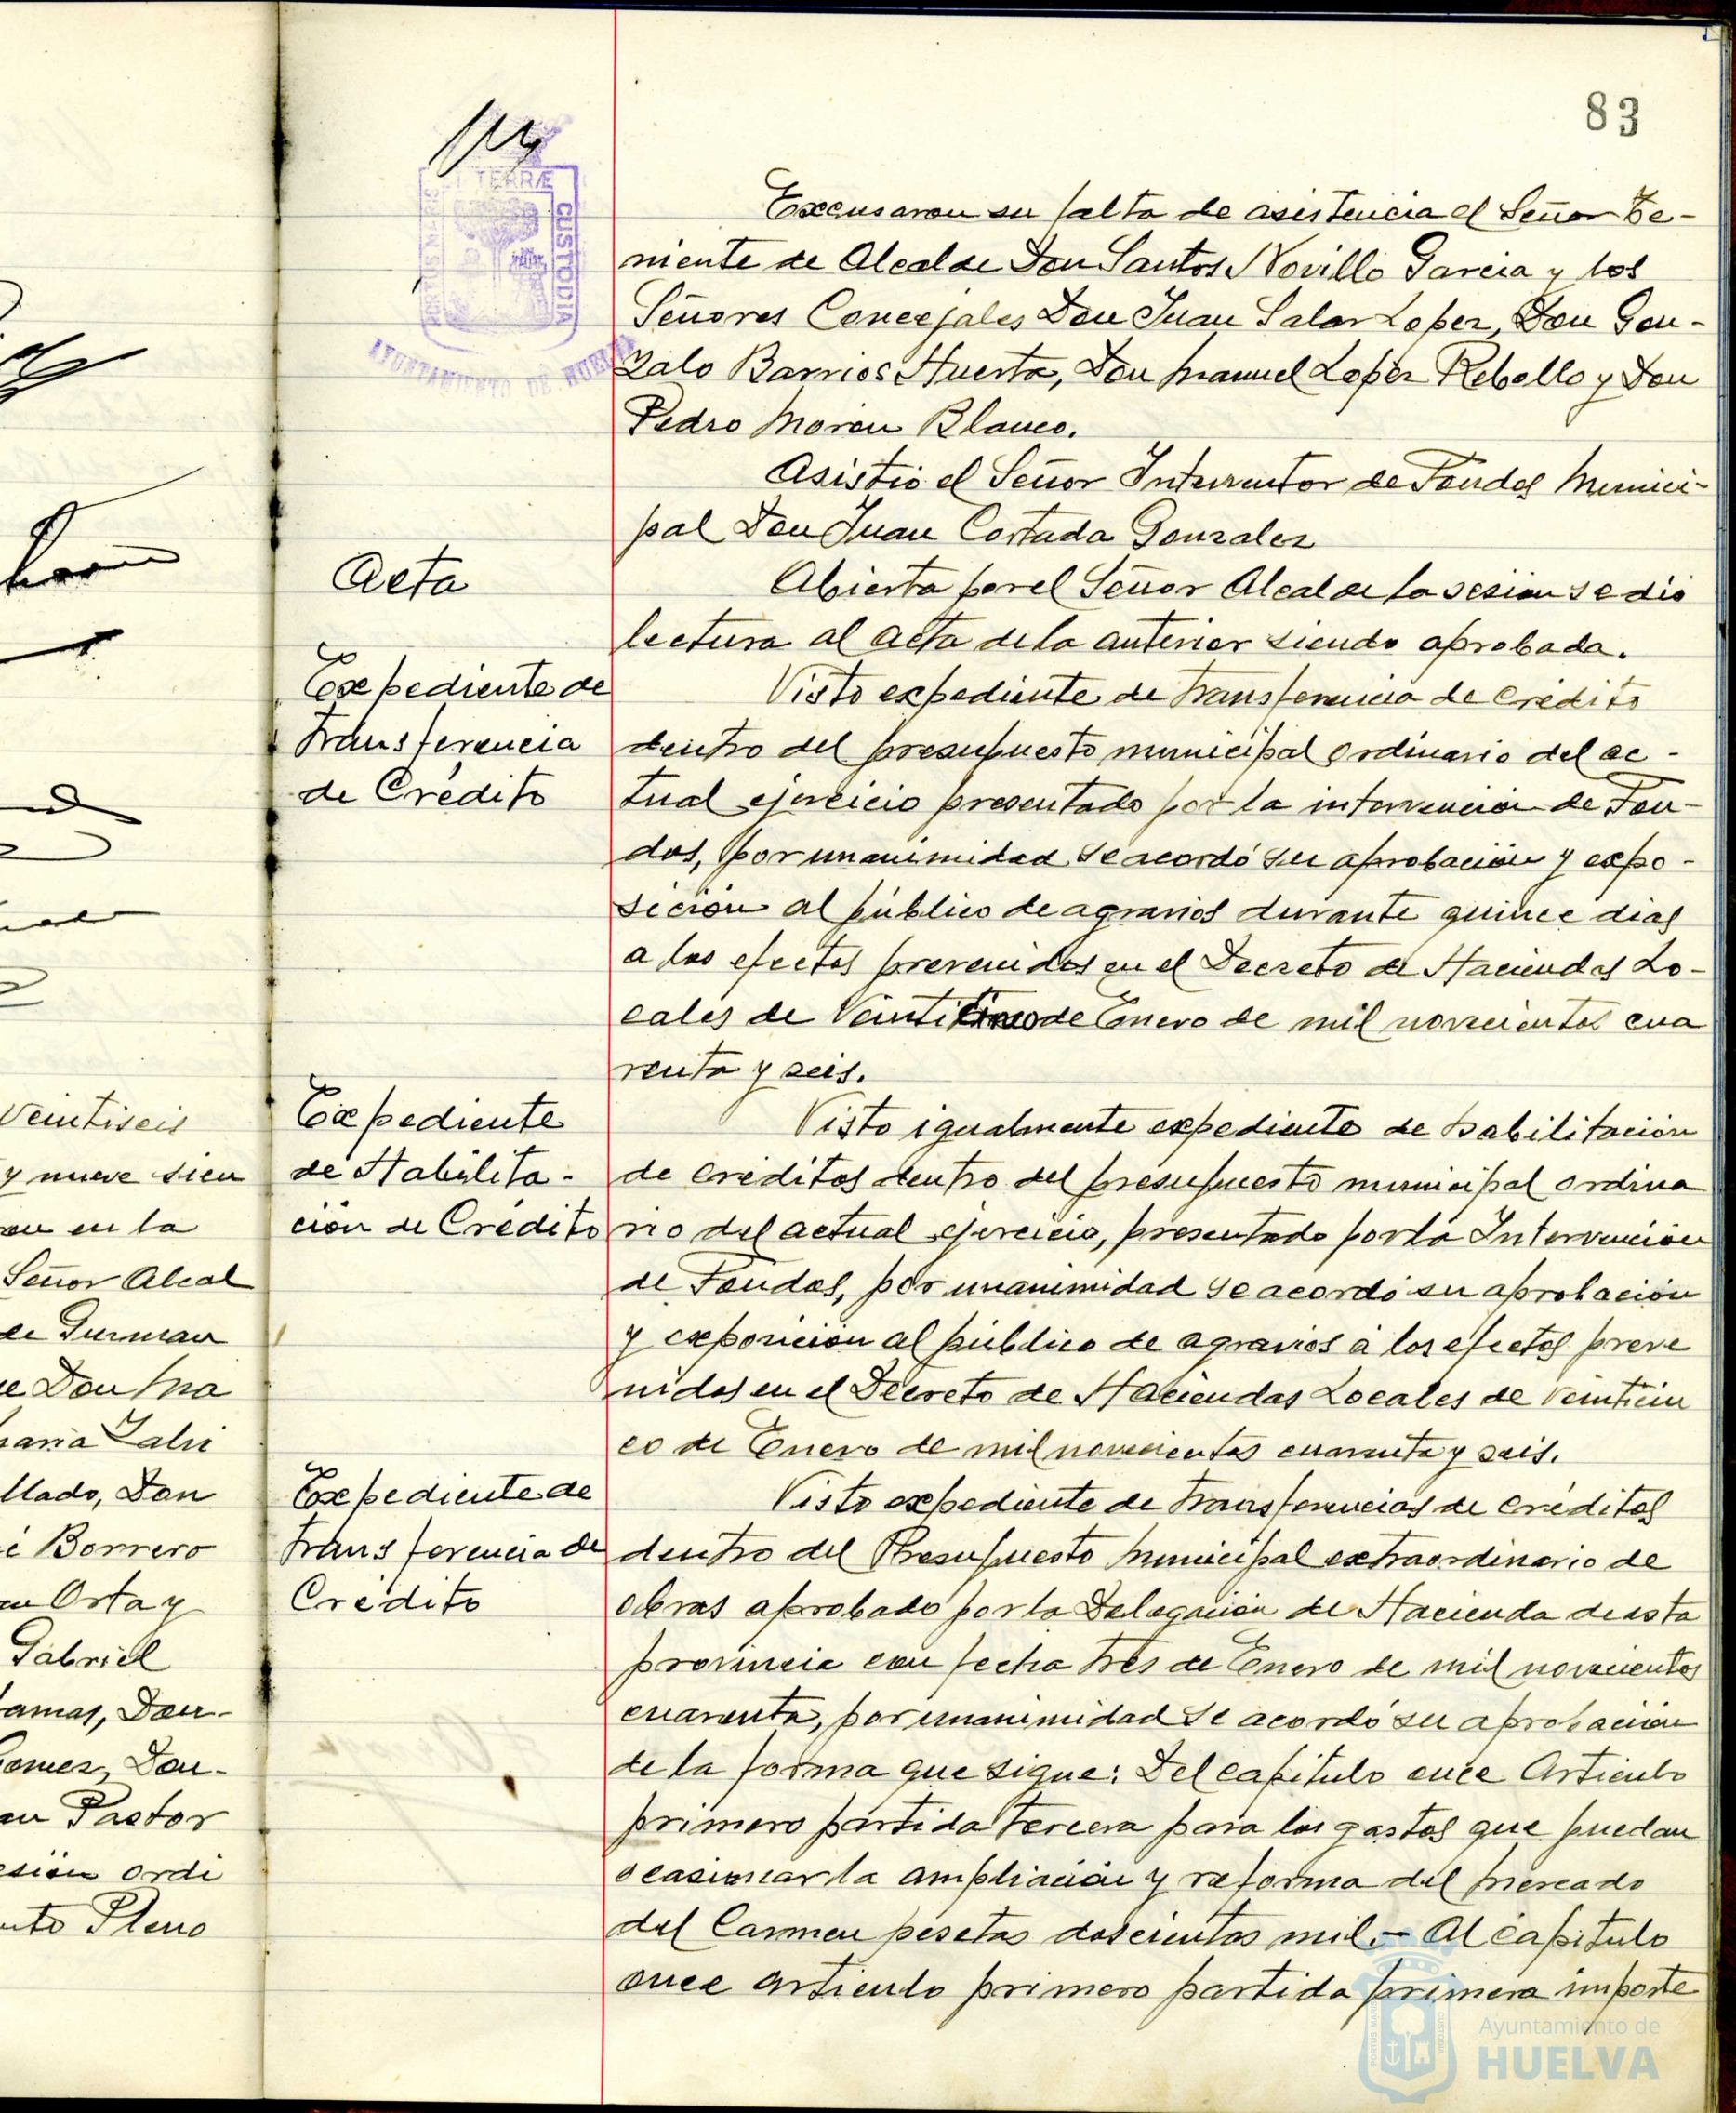 83
TERRÆ
CUSTODIA
AYUNTAMIENTO DE HUELVA
Excusaron su falta de asistencia el Señor Te-
niente de Alcalde Don Santos Novillo Garcia y los
Señores Concejales Don Juan Salas Lopez, Don Gon-
zalo Barrios Huerta, Don Manuel Lopez Rebollo y Don
Pedro Moron Blanco.
Asistió el Señor Interventor de Fondos Munici-
pal Don Juan Cortada Gonzalez
Acta
Abierta por el Señor Alcalde la sesion se dió
lectura al acta de la anterior siendo aprobada.
Expediente de
Transferencia
de Crédito
Visto expediente de Transferencia de crédito
dentro del presupuesto municipal ordinario del ac-
tual ejercicio presentado por la intervención de Fon-
dos, por unanimidad se acordó su aprobación y expo-
sición al público de agravios durante quince dias
a los efectos prevenidos en el Decreto de Haciendas Lo-
cales de Veinticinco de Enero de mil novecientos cua
renta y seis.
Expediente
de Habilita-
ción de Crédito
Visto igualmente expediente de habilitación
de créditos dentro del presupuesto municipal ordina
rio del actual ejercicio, presentado por la Intervención
de Fondos, por unanimidad se acordó su aprobación
y exposición al público de agravios a los efectos preve
nidos en el Decreto de Haciendas Locales de veinticin
co de Enero de mil novecientos cuarenta y seis.
Expediente de
Transferencia de
Crédito
Visto expediente de Transferencias de créditos
dentro del Presupuesto Municipal extraordinario de
obras aprobado por la Delegación de Hacienda de esta
provincia con fecha tres de Enero de mil novecientos
cuarenta, por unanimidad se acordó su aprobación
de la forma que sigue: Del capitulo once Articulo
primero partida tercera para los gastos que puedan
ocasionar la ampliación y reforma del Mercado
del Carmen pesetas doscientas mil.- Al capitulo
once articulo primero partida primera importe
Veintiseis
y nueve sien
en la
Señor Alcal
de Guzman
e Don Ma
maria Zalvi
llado, Don
é Borrero
Orta y
Gabriel
amas, Don-
omez, Don-
Pastor
sión ordi
nto Pleno
Ayuntamiento de
HUELVA